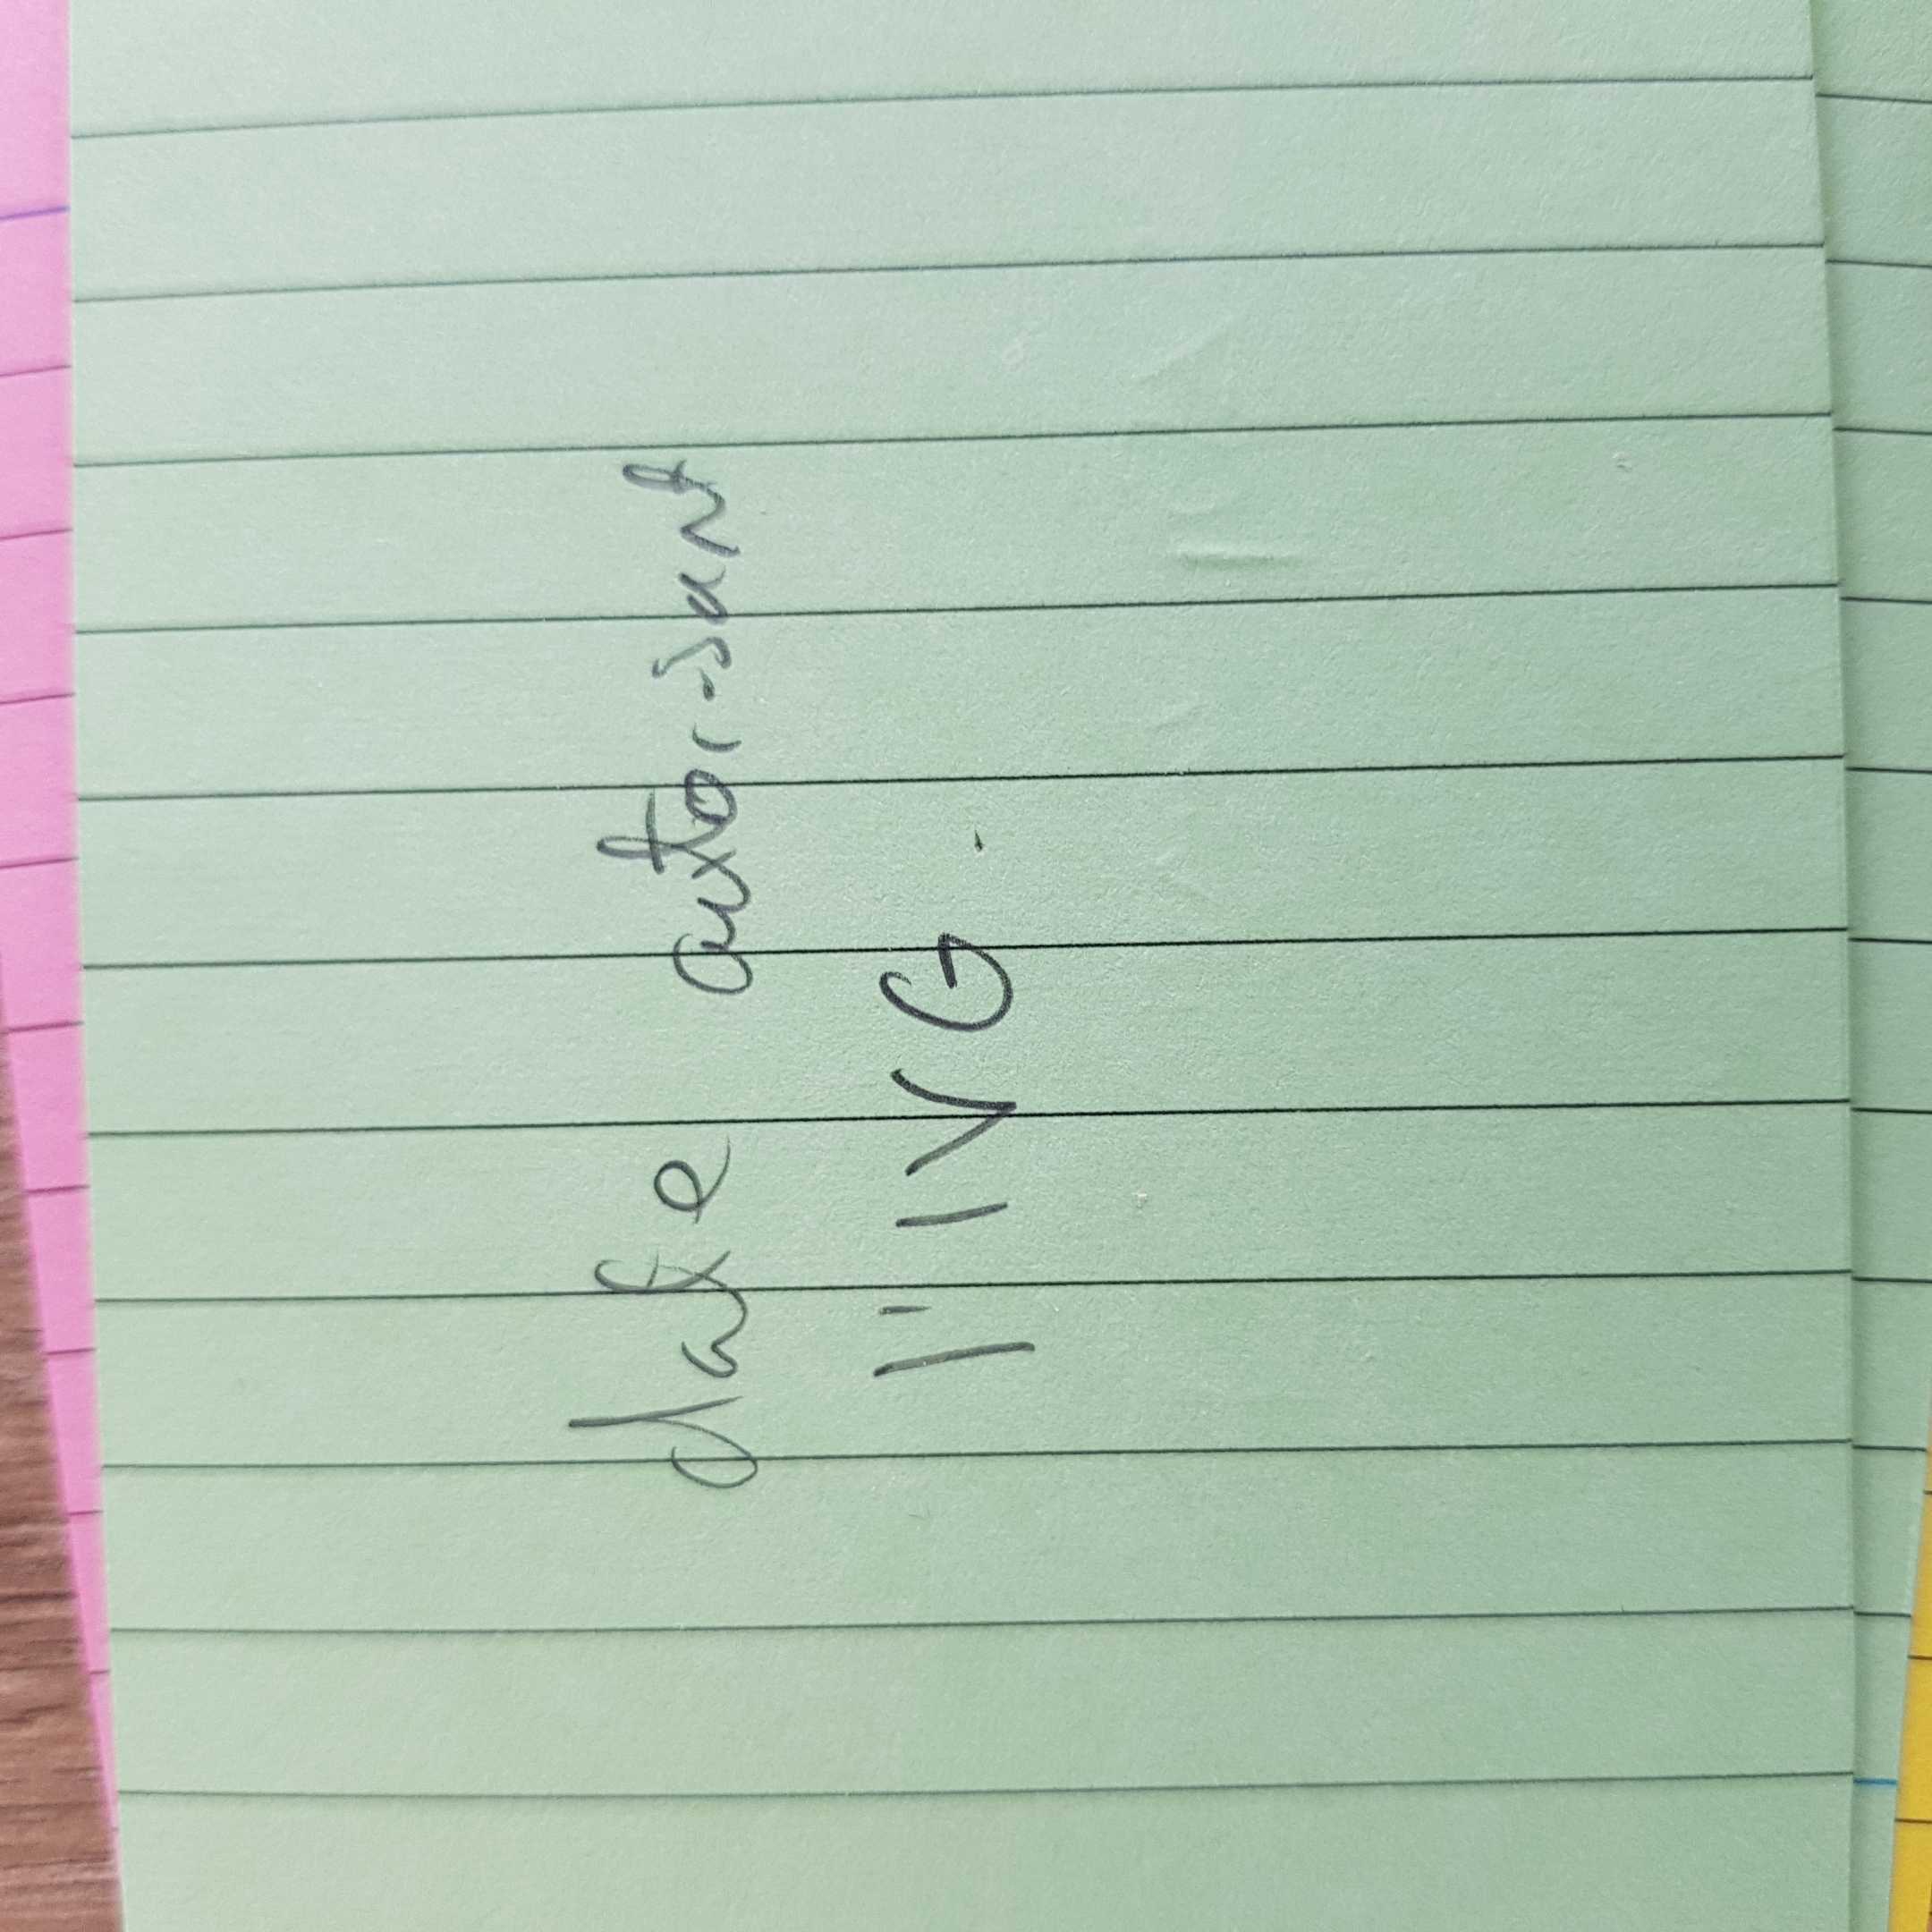 date autorisant
l'IVG.